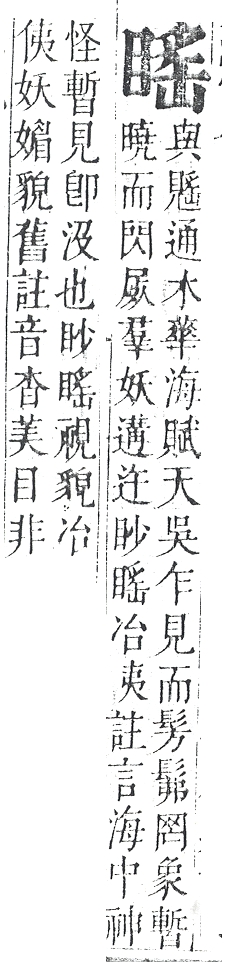 䁘
與通木華海賦天吳乍見而髣髴罔象暫
曉而閃屍羣妖遘迕眇䁘冶夷註言海中神
怪暫見卽沒也眇䁘視貌冶
侇妖媚貌舊註音杳美目非